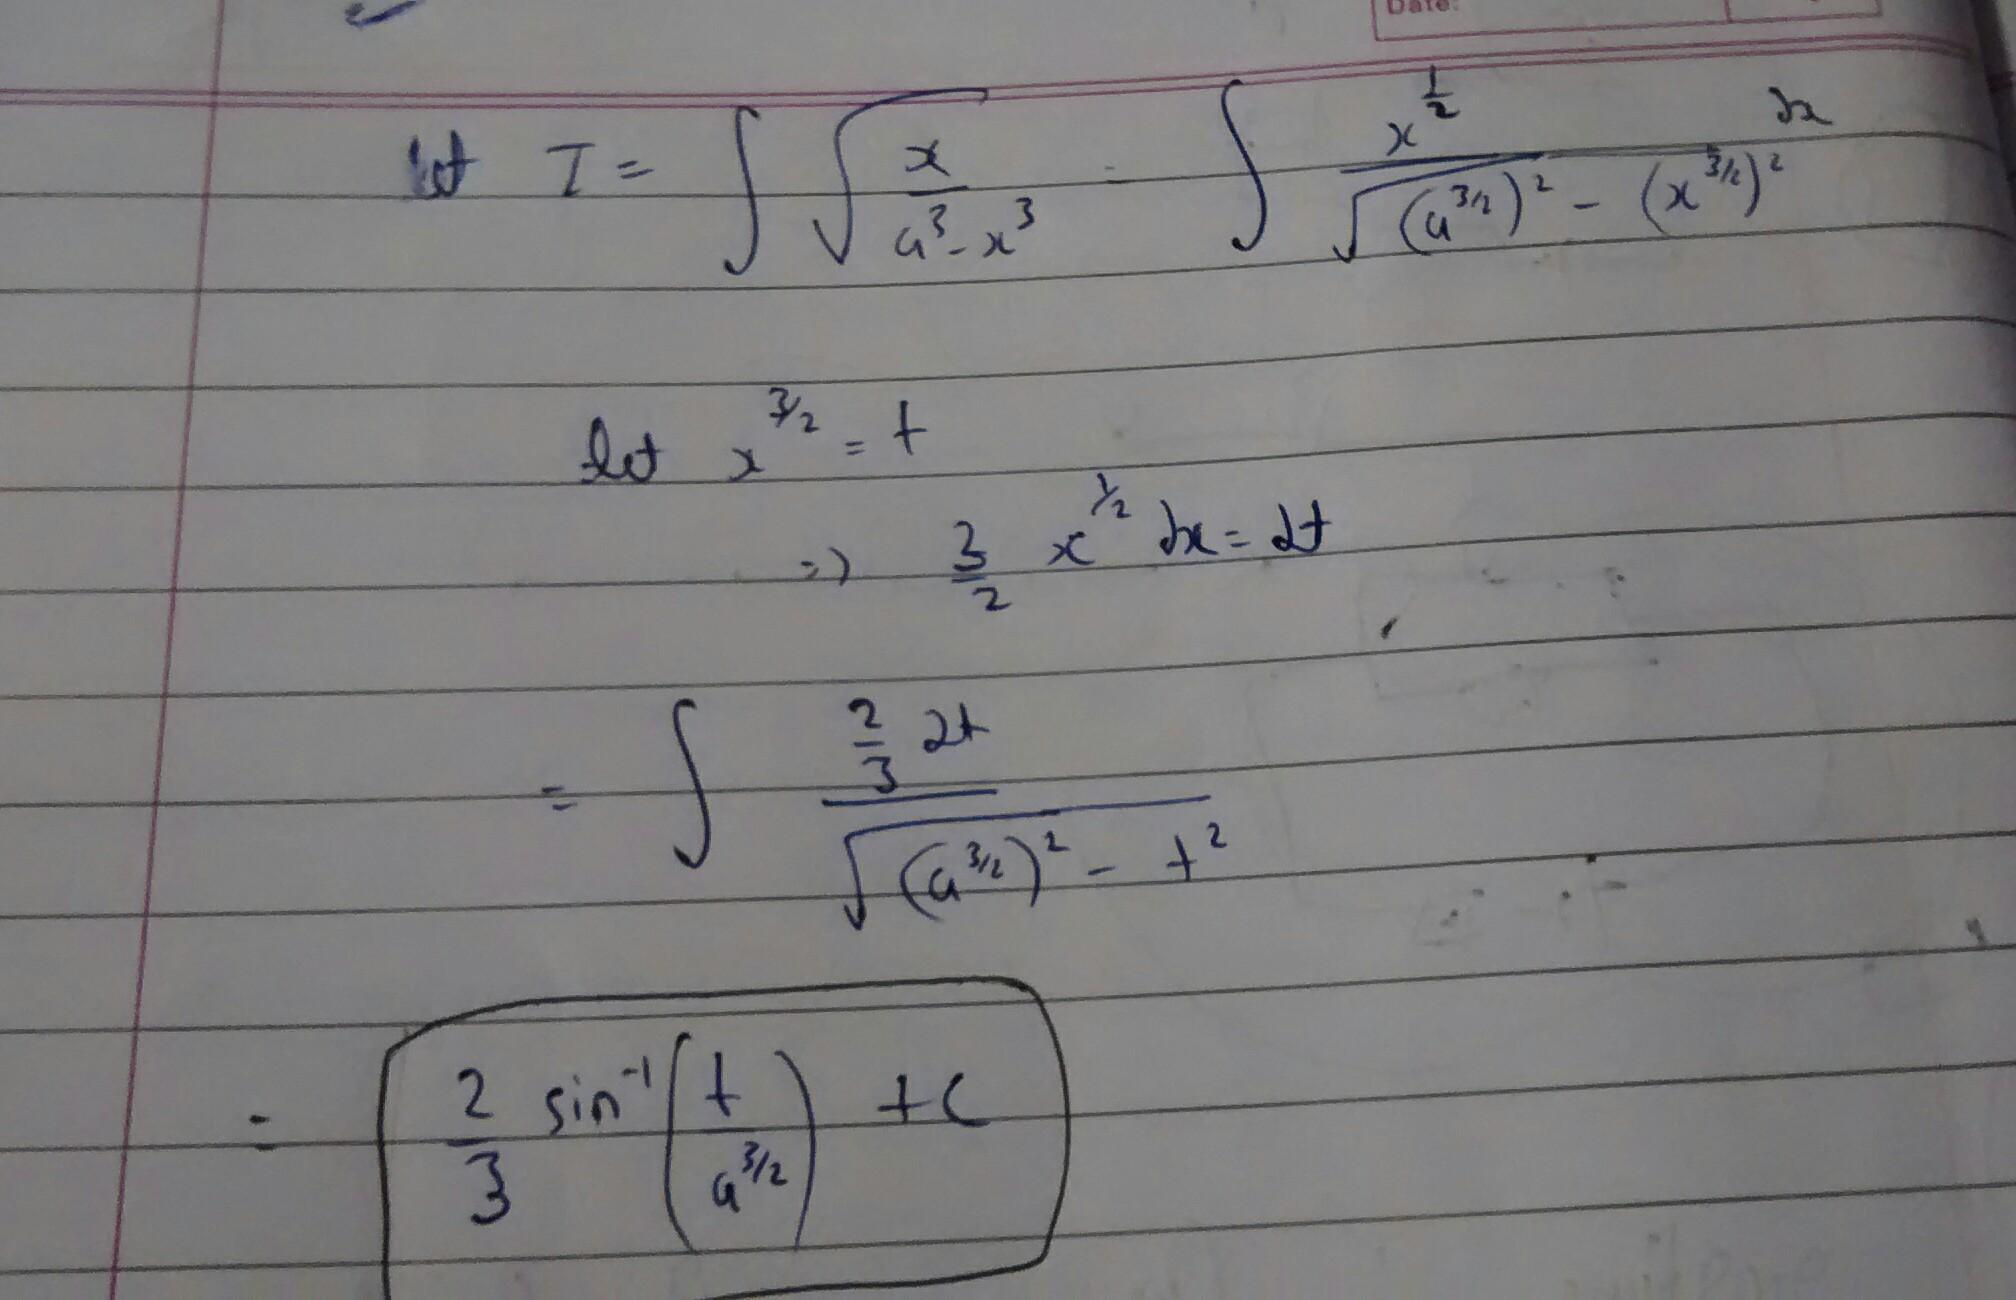 Date:
let I = ∫ √(x/(a³-x³)) = ∫ x^(1/2)/√((a^(3/2))² - (x^(3/2))²) dx
let x^(3/2) = t
=> 3/2 x^(1/2) dx = dt
= ∫ (2/3 dt)/√((a^(3/2))² - t²)
= 2/3 sin⁻¹(t/a^(3/2)) + c